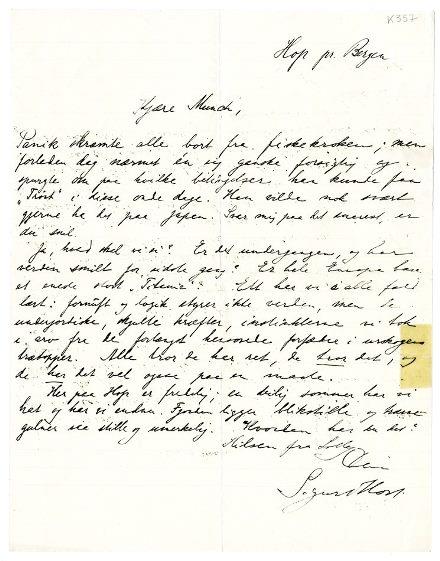 K 357
Hop pr. Bergen
Kjære Munch,
Panik skræmte alle bort fra fiskekroken; men
forleden dag nærmet én sig ganske forsigtig og
spurgte om paa hvilke betingelser han kunde faa
"Trost" i disse onde dage. Han vilde nok svært
gjerne ha det paa Japan. Svar mig paa det snarest, er
du snil.
Ja, hvad skal vi si? Er det undergangen, og har
verden smilt for sidste gang? Er hele Europa bare
et eneste stort "Titanic"? Ett har vi i alle fald
lært: fornuft og logik styrer ikke verden, men de
underjordiske, skjulte kræfter, instinkterne vi tok
i arv fra de forlængst henvorne forfædre i urskogens
trætopper. Alle tror de har ret, de tror det, og
de har det vel ogsaa paa en maate.
Her paa Hop er fredelig; en deilig sommer har vi
hat og har vi endnu. Fjorden ligger blikstille og
stille og umerkelig. Hvordan har du det?
Hilsen fra
Din
Sigurd Høst.